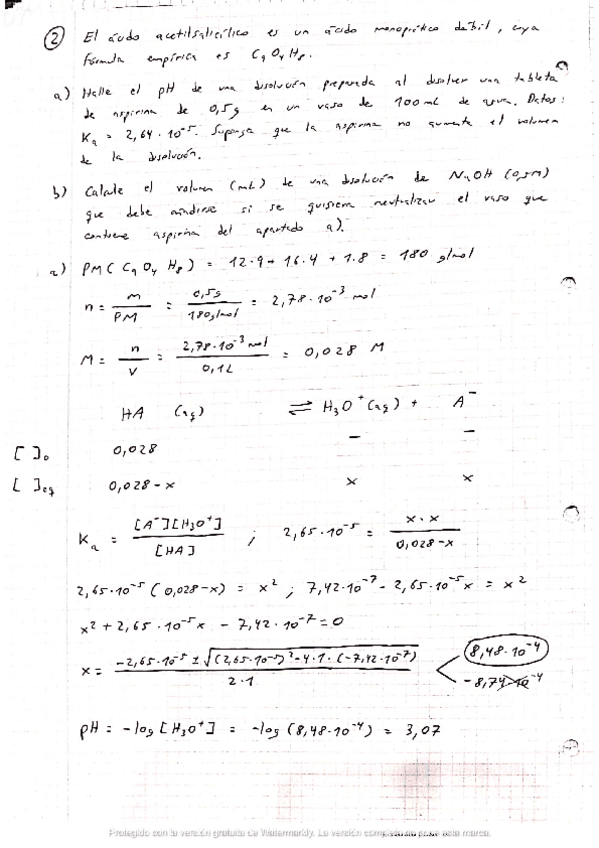 ② El ácido acetilsalicílico es un ácido monoprótico débil, cuya
fórmula empírica es C9O4H8.
a) Halle el pH de una disolución preparada al disolver una tableta
de aspirina de 0,5g en un vaso de 100mL de agua. Datos:
Ka = 2,64·10⁻⁵. Suponga que la aspirina no aumenta el volumen
de la disolución.
b) Calcule el volumen (mL) de una disolución de NaOH (0,5M)
que debe añadirse si se quisiera neutralizar el vaso que
contiene aspirina del apartado a).
a) PM(C9O4H8) = 12·9 + 16·4 + 1·8 = 180 g/mol
n = m/PM = 0,5g/180g/mol = 2,78·10⁻³ mol
M = n/V = 2,78·10⁻³ mol/0,1L = 0,028 M
HA (aq) ⇌ H3O⁺(aq) + A⁻
[ ]o 0,028 – –
[ ]eq 0,028-x x x
Ka = [A⁻][H3O⁺]/[HA] ; 2,65·10⁻⁵ = x·x/0,028-x
2,65·10⁻⁵(0,028-x) = x² ; 7,42·10⁻⁷ - 2,65·10⁻⁵x = x²
x² + 2,65·10⁻⁵x - 7,42·10⁻⁷ = 0
x = -2,65·10⁻⁵ ± √(2,65·10⁻⁵)² - 4·1·(-7,42·10⁻⁷)/2·1 8,48·10⁻⁴
-8,74·10⁻⁴
pH = -log[H3O⁺] = -log(8,48·10⁻⁴) = 3,07
Protegido con la versión gratuita de Watermarkly. La versión completa no pone esta marca.